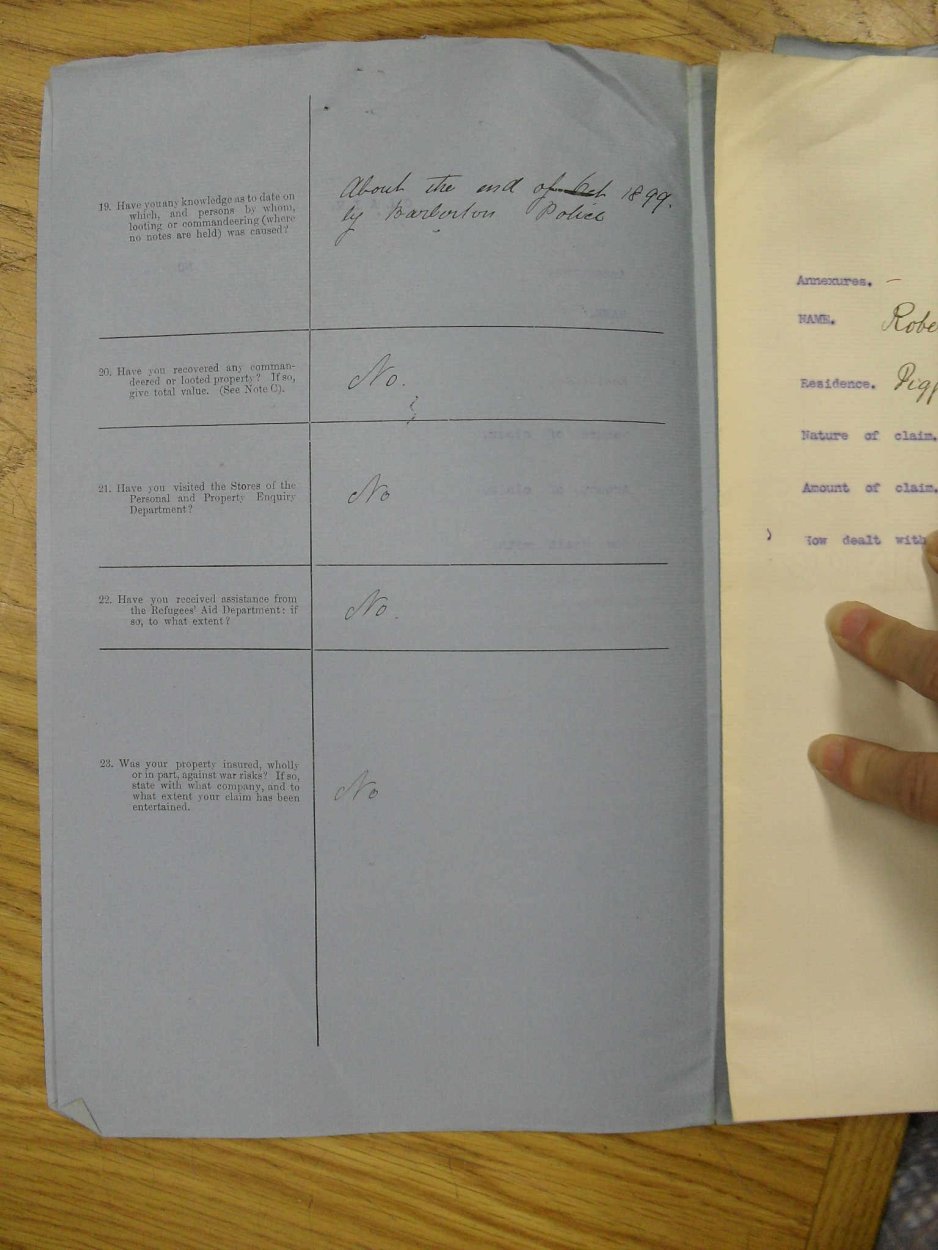 19. Have you any knowledge as to date on
which, and persons by whom,
looting or commandeering (where
no notes are held) was caused?
About the end of Oct 1899.
by Barberton Police
20. Have you recovered any comman-
deered or looted property? If so,
give total value. (See Note C).
No.
21. Have you visited the Stores of the
Personal and Property Enquiry
Department?
No
22. Have you received assistance from
the Refugees' Aid Department: if
so, to what extent?
No.
23. Was your property insured, wholly
or in part, against war risks? If so,
state with what company, and to
what extent your claim has been
entertained.
No
Annexures. -
NAME. Robe
Residence. Pigg
Nature of claim.
Amount of claim.
How dealt with